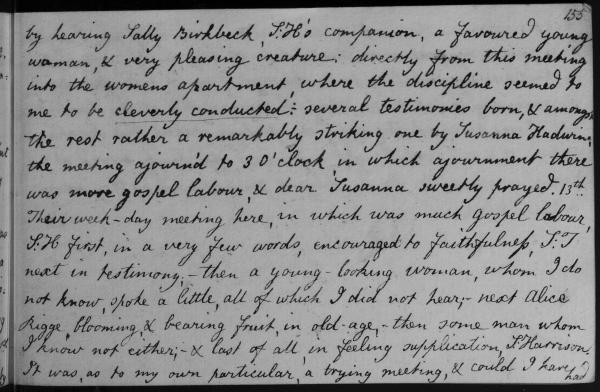 155
by hearing Sally Birkbeck, S:H's companion, a favoured young
woman, & very pleasing creature: directly from this meeting
into the womens apartment, where the discipline seemed to
me to be cleverly conducted: several testimonies born, & amongst
the rest rather a remarkably striking one by Susanna Hadwin;
the meeting ajournd to 3 O'clock, in which ajournment there
was more gospel labour, & dear Susanna sweetly prayed. 13th.
Their week-day meeting here, in which was much gospel labour,
S:H first, in a very few words, encouraged to faithfulness, S:T
next in testimony, - then a young-looking woman, whom I do
not know, spoke a little, all of which I did not hear;- next Alice
Rigge, blooming, & bearing fruit, in old-age,- then some man whom
I know not either;- & last of all, in feeling supplication, S:Harrison.
It was, as to my own particular, a trying meeting, & could I have
had